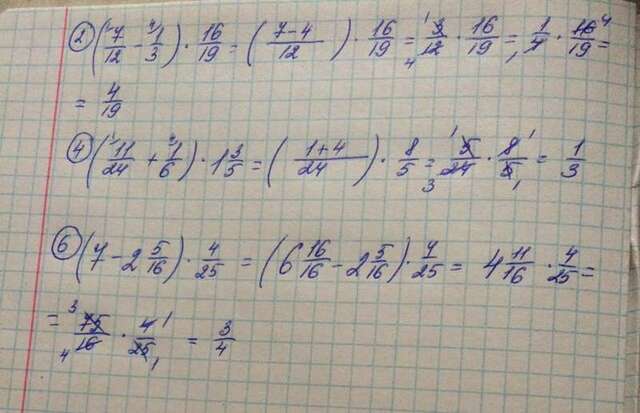 ② (7/12 - 1/3) · 16/19 = ( (7-4)/12 ) · 16/19 = 3/12 · 16/19 = 1/4 · 16/19 =
= 4/19
④ (11/24 + 1/6) · 1 3/5 = ( (1+4)/24 ) · 8/5 = 5/24 · 8/5 = 1/3
⑥ (7 - 2 5/16) · 4/25 = (6 16/16 - 2 5/16) · 4/25 = 4 11/16 · 4/25 =
= 75/16 · 4/25 = 3/4